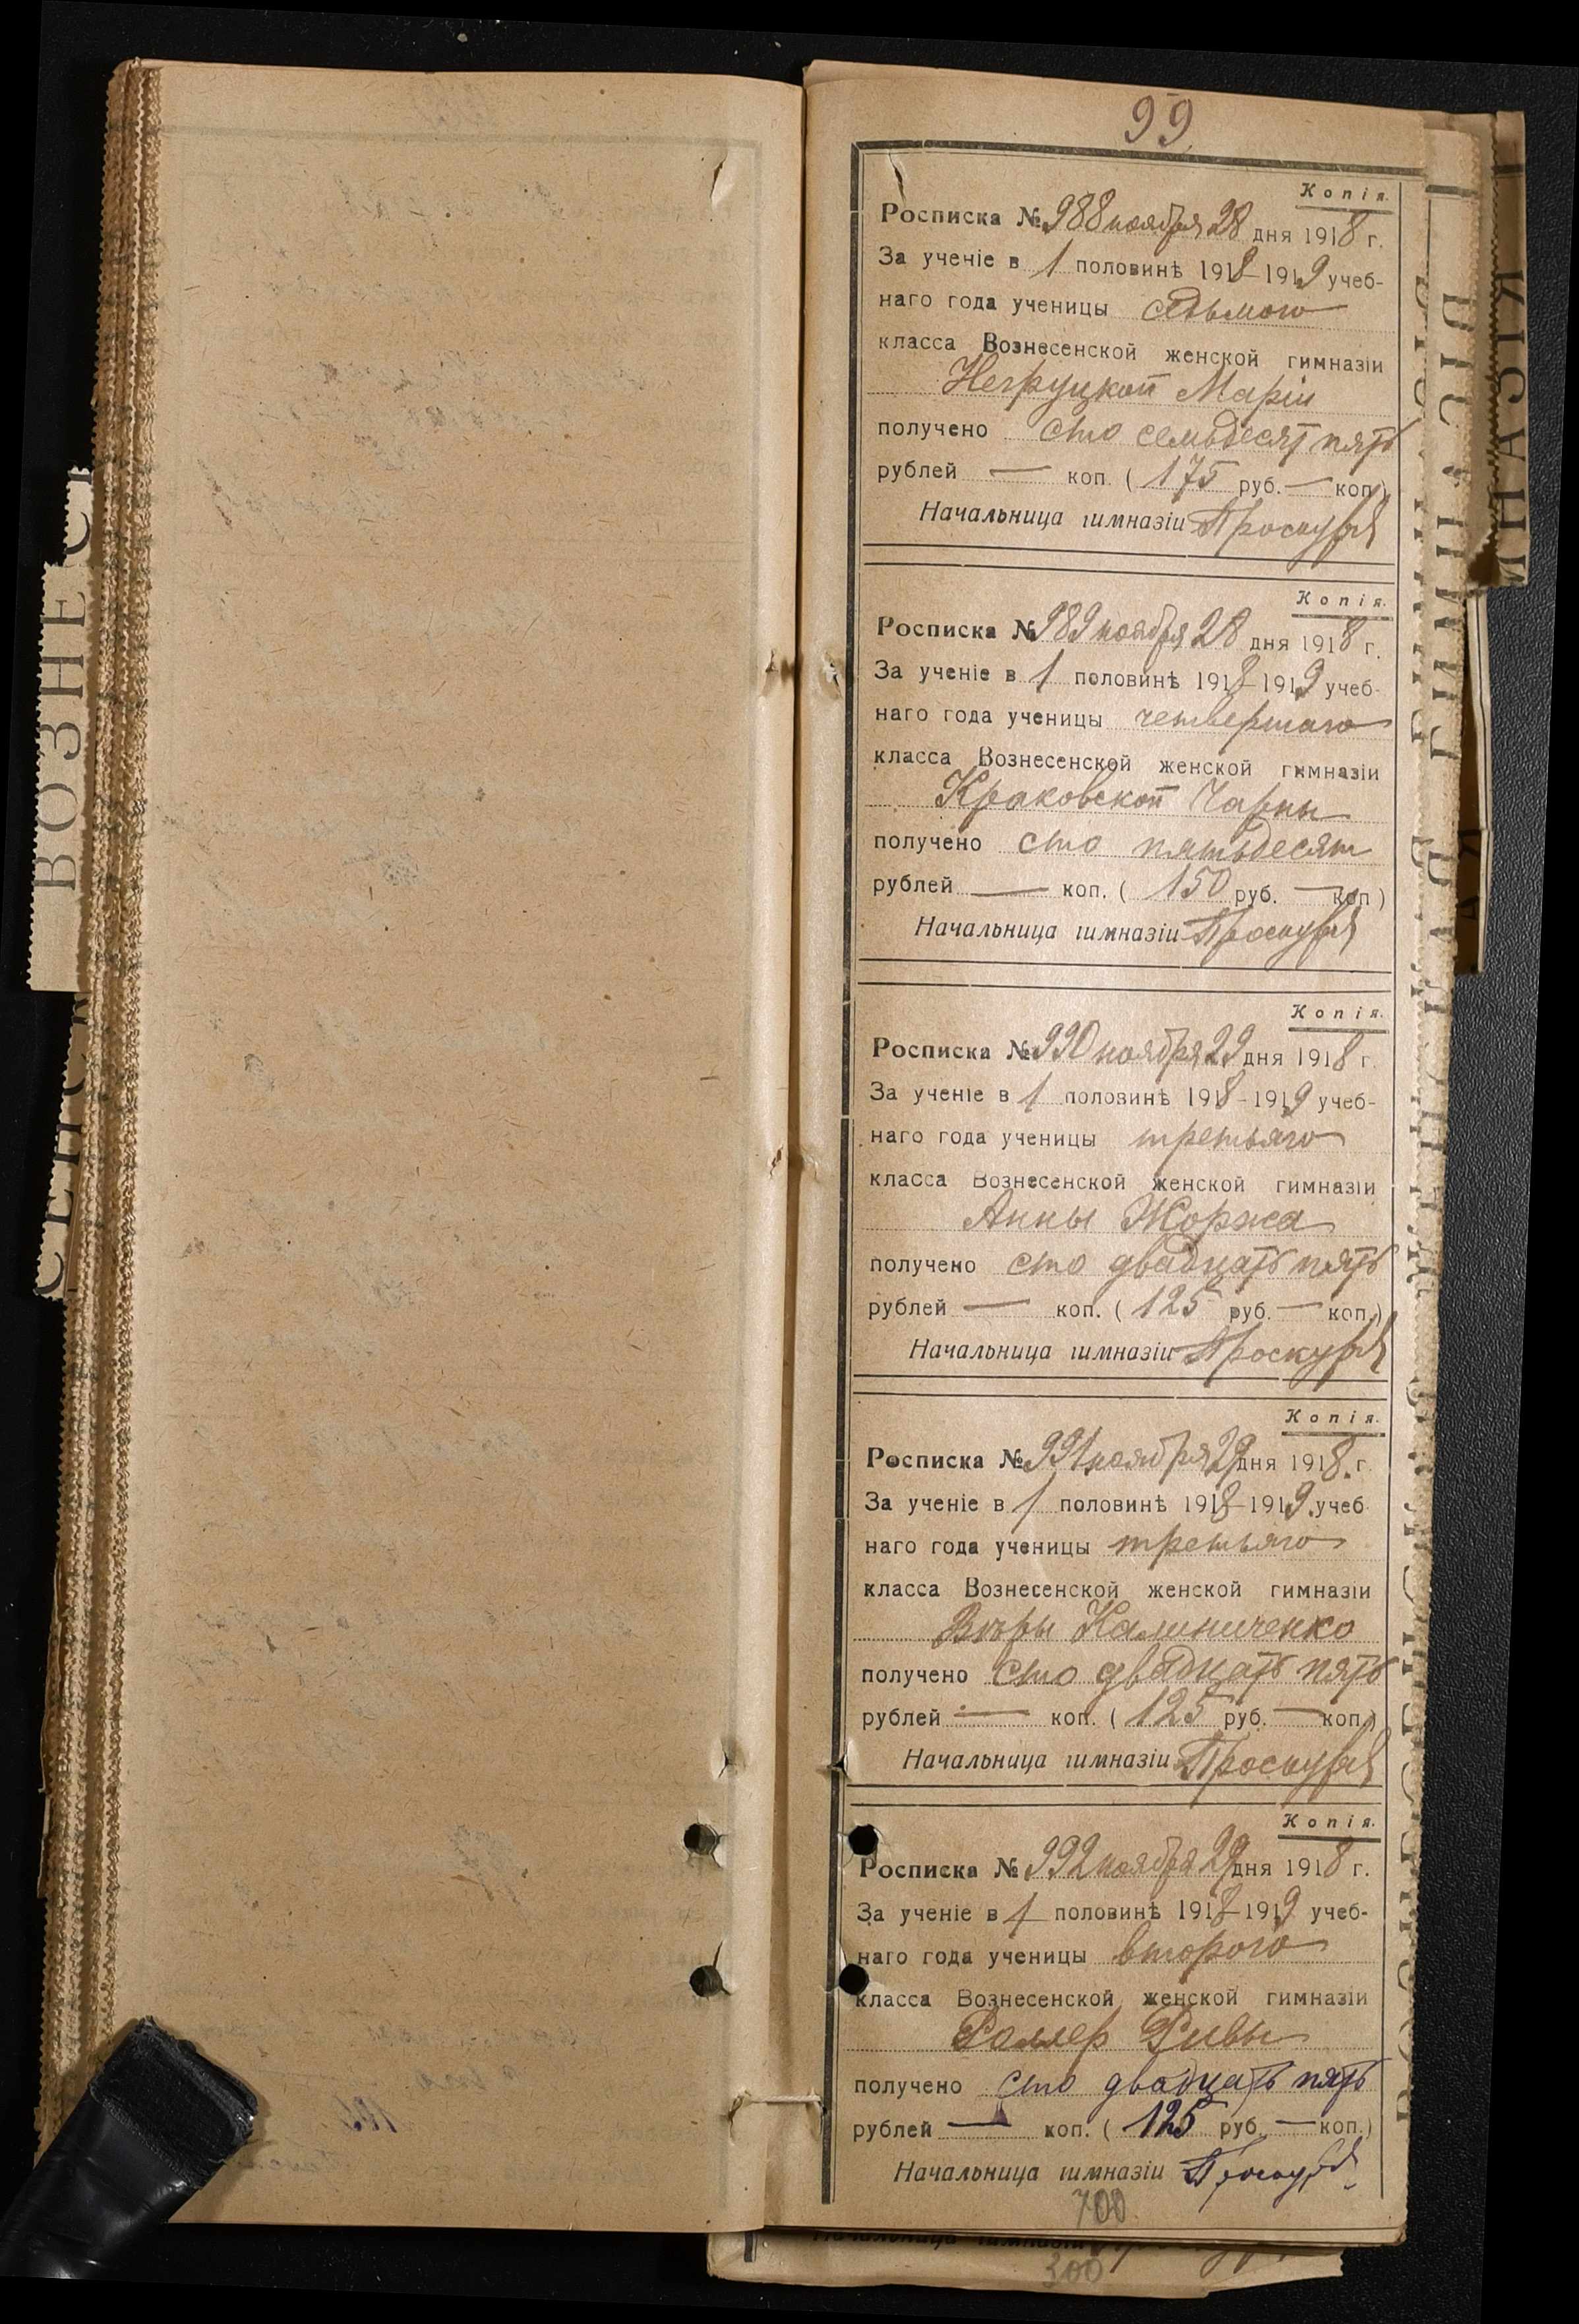 99
Копія.
Росписка № 988 ноября 28 дня 1918 г.
За ученіе в 1 половинѣ 1918-1919 учеб-
наго года ученицы седьмого
класса Вознесенской женской гимназіи
Негруцкой Маріи
получено сто семьдесят пять
рублей — коп. (175 руб. — коп.)
Начальница гимназіи Проскур
Копія.
Росписка № 989 ноября 28 дня 1918 г.
За ученіе в 1 половинѣ 1918-1919 учеб-
наго года ученицы четвертаго
класса Вознесенской женской гимназіи
Краковской Чарны
получено сто пятьдесят
рублей — коп. (150 руб. — коп)
Начальница гимназіи Проскур
Копія.
Росписка № 990 ноября 29 дня 1918 г.
За ученіе в 1 половинѣ 1918-1919 учеб-
наго года ученицы третьяго
класса Вознесенской женской гимназіи
Анны Жоржа
получено сто двадцать пять
рублей — коп. (125 руб. — коп.)
Начальница гимназіи Проскур
Копія.
Росписка № 991 ноября 29 дня 1918 г.
За ученіе в 1 половинѣ 1918-1919 учеб-
наго года ученицы третьяго
класса Вознесенской женской гимназіи
Вѣры Калиниченко
получено сто двадцать пять
рублей — коп. (125 руб. — коп.)
Начальница гимназіи Проскур
Копія.
Росписка № 992 ноября 29 дня 1918 г.
За ученіе в 1 половинѣ 1918-1919 учеб-
наго года ученицы второго
класса Вознесенской женской гимназіи
Роллер Ривы
получено сто двадцать пять
рублей — коп. (125 руб. — коп.)
Начальница гимназіи Проскур
700
300
ВОЗНЕС